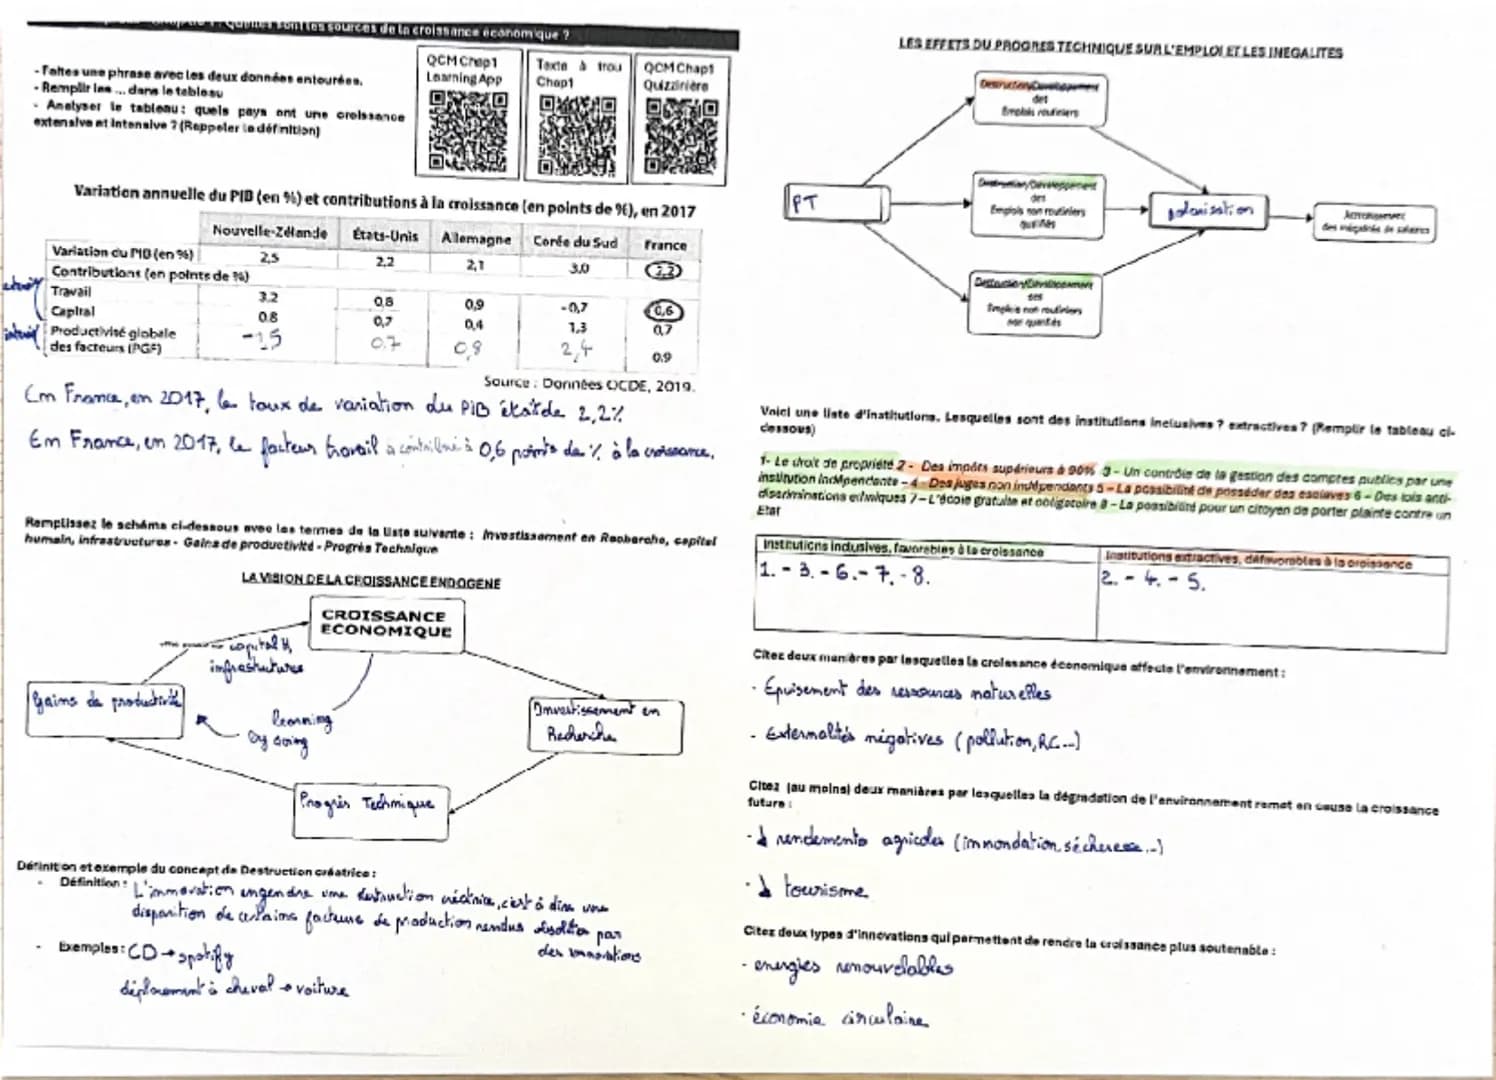 Quelles sont les sources de la croissance économique ?
- Faites une phrase avec les deux données entourées.
- Remplir les ... dans le tableau
- Analyser le tableau : quels pays ont une croissance
extensive et intensive ? (Rappeler la définition)
QCM Chap1
LearningApp
Texte à trou
Chap1
QCM Chap1
Quizzinière
Variation annuelle du PIB (en %) et contributions à la croissance (en points de %), en 2017
Nouvelle-Zélande États-Unis Allemagne Corée du Sud France
Variation du PIB (en %) 2,5 2,2 2,1 3,0 2,2
Contributions (en points de %)
Travail 3.2 0,8 0,9 -0,7 0,6
Capital 0.8 0,7 0,4 1,3 0,7
Productivité globale
des facteurs (PGF) -1,5 0.7 0,8 2,4 0.9
Source : Données OCDE, 2019.
En France, en 2017, le taux de variation du PIB était de 2,2%
En France, en 2017, le facteur travail a contribué à 0,6 points de % à la croissance.
Remplissez le schéma ci-dessous avec les termes de la liste suivante : Investissement en Recherche, capital
humain, infrastructures - Gains de productivité - Progrès Technique
LA VISION DE LA CROISSANCE ENDOGENE
CROISSANCE
ECONOMIQUE
capital H,
infrastructures
Gains de productivité
learning
by doing
Investissement en
Recherche
Progrès Technique
Définition et exemple du concept de Destruction créatrice :
- Définition : L'innovation engendre une destruction créatrice, c'est à dire une
disparition de certains facteurs de production rendus obsolètes par
des innovations
- Exemples : CD → spotify
déplacement à cheval → voiture
LES EFFETS DU PROGRES TECHNIQUE SUR L'EMPLOI ET LES INEGALITES
Destruction/Développement
des
Emplois routiniers
PT
Destruction/Développement
des
Emplois non routiniers
qualifiés
polarisation
Accroissement
des inégalités de salaires
Destruction/Développement
des
Emplois non routiniers
non qualifiés
Voici une liste d'institutions. Lesquelles sont des institutions inclusives ? extractives ? (Remplir le tableau ci-
dessous)
1- Le droit de propriété 2 - Des impôts supérieurs à 90% 3 - Un contrôle de la gestion des comptes publics par une
institution indépendante - 4 - Des juges non indépendants 5 - La possibilité de posséder des esclaves 6 - Des lois anti-
discriminations ethniques 7 - L'école gratuite et obligatoire 8 - La possibilité pour un citoyen de porter plainte contre un
Etat
Institutions inclusives, favorables à la croissance
Institutions extractives, défavorables à la croissance
1. - 3. - 6. - 7. - 8.
2. - 4. - 5.
Citez deux manières par lesquelles la croissance économique affecte l'environnement :
- Épuisement des ressources naturelles
- Externalités négatives (pollution, RC...)
Citez (au moins) deux manières par lesquelles la dégradation de l'environnement remet en cause la croissance
future :
- ↓ rendements agricoles (innondation, sécheresse...)
- ↓ tourisme
Citez deux types d'innovations qui permettent de rendre la croissance plus soutenable :
- energies renouvelables
- économie circulaire